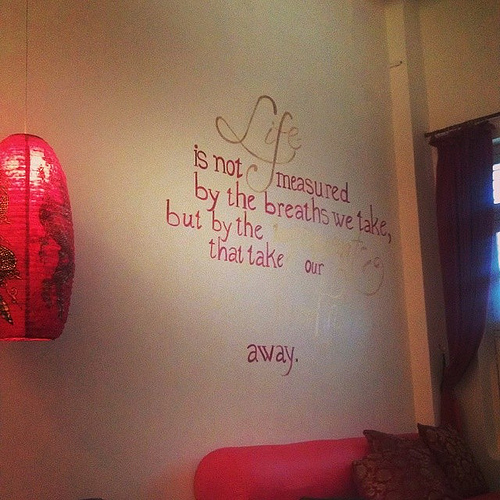 Life
is not measured
by the breaths we take,
but by the
that take our
away.